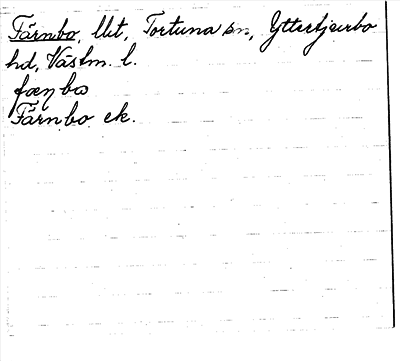 Färnbo, llkt, Tortuna sn, Yttertjurbo
hd, Västm. l.
fæɳbω
Färnbo ek.